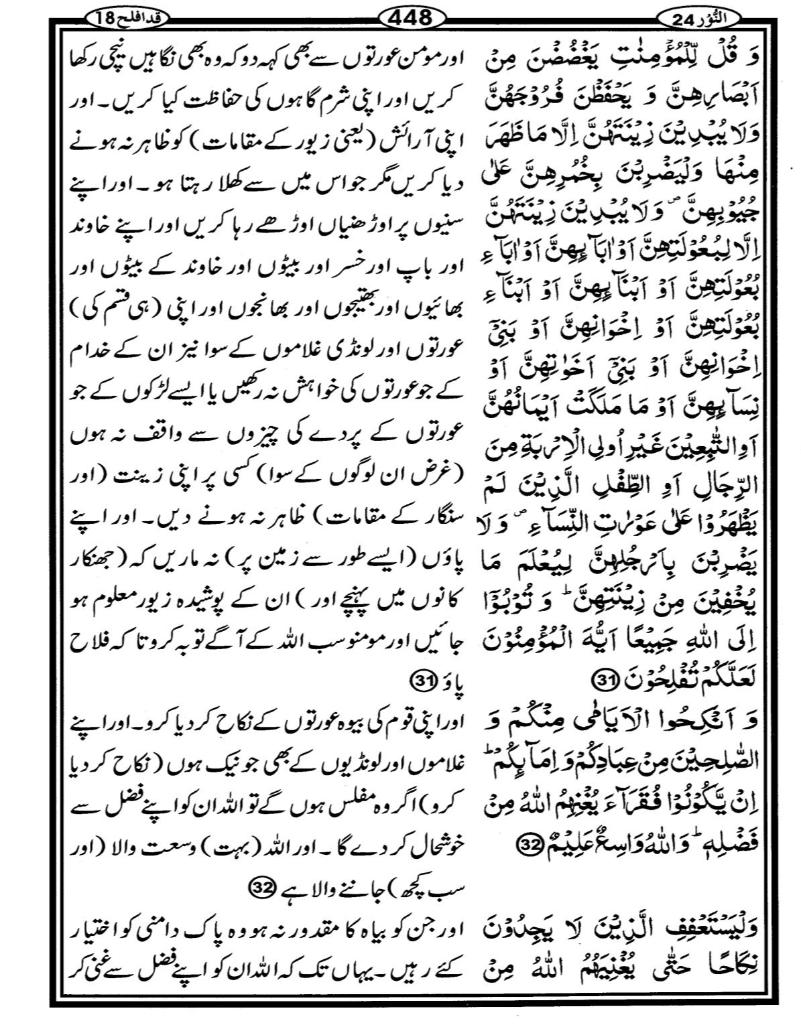 النُّوْر 24
448
قد افلح 18
وَ قُلْ لِّلْمُؤْمِنٰتِ يَغْضُضْنَ مِنْ
اَبْصَارِهِنَّ وَ يَحْفَظْنَ فُرُوْجَهُنَّ
وَلَا يُبْدِيْنَ زِيْنَتَهُنَّ اِلَّا مَا ظَهَرَ
مِنْهَا وَلْيَضْرِبْنَ بِخُمُرِهِنَّ عَلٰى
جُيُوْبِهِنَّ ۪ وَلَا يُبْدِيْنَ زِيْنَتَهُنَّ
اِلَّا لِبُعُوْلَتِهِنَّ اَوْ اٰبَآىِٕهِنَّ اَوْ اٰبَآءِ
بُعُوْلَتِهِنَّ اَوْ اَبْنَآىِٕهِنَّ اَوْ اَبْنَآءِ
بُعُوْلَتِهِنَّ اَوْ اِخْوَانِهِنَّ اَوْ بَنِيْۤ
اِخْوَانِهِنَّ اَوْ بَنِيْۤ اَخَوٰتِهِنَّ اَوْ
نِسَآىِٕهِنَّ اَوْ مَا مَلَكَتْ اَيْمَانُهُنَّ
اَوِ التّٰبِعِيْنَ غَيْرِ اُولِي الْاِرْبَةِ مِنَ
الرِّجَالِ اَوِ الطِّفْلِ الَّذِيْنَ لَمْ
يَظْهَرُوْا عَلٰى عَوْرٰتِ النِّسَآءِ ۪ وَلَا
يَضْرِبْنَ بِاَرْجُلِهِنَّ لِيُعْلَمَ مَا
يُخْفِيْنَ مِنْ زِيْنَتِهِنَّ ؕ وَ تُوْبُوْۤا
اِلَى اللّٰهِ جَمِيْعًا اَيُّهَ الْمُؤْمِنُوْنَ
لَعَلَّكُمْ تُفْلِحُوْنَ 31
وَ اَنْكِحُوا الْاَيَامٰى مِنْكُمْ وَ
الصّٰلِحِيْنَ مِنْ عِبَادِكُمْ وَ اِمَآىِٕكُمْ ؕ
اِنْ يَّكُوْنُوْا فُقَرَآءَ يُغْنِهِمُ اللّٰهُ مِنْ
فَضْلِهٖ ؕ وَاللّٰهُ وَاسِعٌ عَلِيْمٌ 32
وَلْيَسْتَعْفِفِ الَّذِيْنَ لَا يَجِدُوْنَ
نِكَاحًا حَتّٰى يُغْنِيَهُمُ اللّٰهُ مِنْ
اور مومن عورتوں سے بھی کہہ دو کہ وہ بھی نگاہیں نیچی رکھا
کریں اور اپنی شرم گاہوں کی حفاظت کیا کریں۔ اور
اپنی آرائش (یعنی زیور کے مقامات) کو ظاہر نہ ہونے
دیا کریں مگر جو اس میں سے کھلا رہتا ہو۔ اور اپنے
سنیوں پر اوڑھنیاں اوڑھے رہا کریں اور اپنے خاوند
اور باپ اور خسر اور بیٹوں اور خاوند کے بیٹوں اور
بھائیوں اور بھتیجوں اور بھانجوں اور اپنی (ہی قسم کی)
عورتوں اور لونڈی غلاموں کے سوا نیز ان کے خدام
کے جو عورتوں کی خواہش نہ رکھیں یا ایسے لڑکوں کے جو
عورتوں کے پردے کی چیزوں سے واقف نہ ہوں
(غرض ان لوگوں کے سوا) کسی پر اپنی زینت (اور
سنگار کے مقامات) ظاہر نہ ہونے دیں۔ اور اپنے
پاؤں (ایسے طور سے زمین پر) نہ ماریں کہ (جھنکار
کانوں میں پہنچے اور) ان کے پوشیدہ زیور معلوم ہو
جائیں اور مومنو سب اللہ کے آگے توبہ کرو تا کہ فلاح
پاؤ 31
اور اپنی قوم کی بیوہ عورتوں کے نکاح کر دیا کرو۔ اور اپنے
غلاموں اور لونڈیوں کے بھی جو نیک ہوں (نکاح کر دیا
کرو) اگر وہ مفلس ہوں گے تو اللہ ان کو اپنے فضل سے
خوشحال کر دے گا۔ اور اللہ (بہت) وسعت والا (اور
سب کچھ) جاننے والا ہے 32
اور جن کو بیاہ کا مقدور نہ ہو وہ پاک دامنی کو اختیار
کئے رہیں۔ یہاں تک کہ اللہ ان کو اپنے فضل سے غنی کر